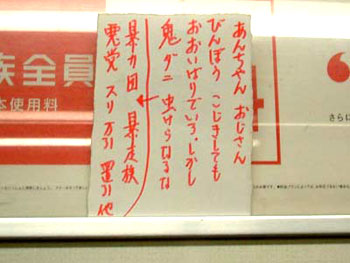 あんちゃん おじさん
びんぼう こじきしても
おおいばりでいろ・しかし
鬼 ダニ 虫けらになるな
暴力団 暴走族
悪党 スリ 万引 置引 他
族全員
本使用料
さらに